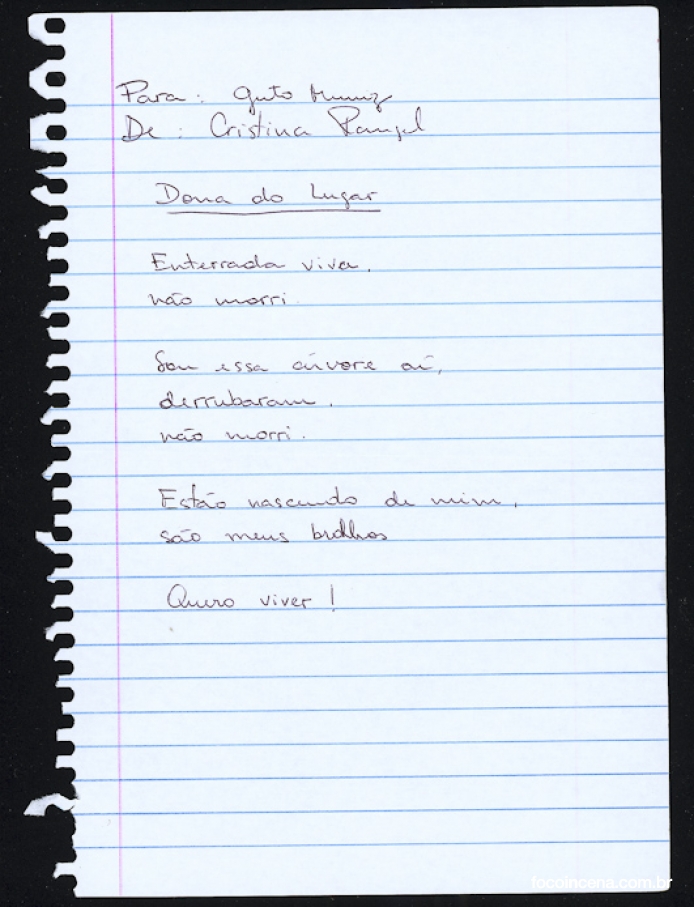 Para: Guto Muniz
De: Cristina Rangel
Dona do Lugar
Enterrada viva,
não morri.
Sou essa árvore aí,
derrubaram,
não morri.
Estão nascendo de mim,
são meus brolhos
Quero viver!
focoincena.com.br